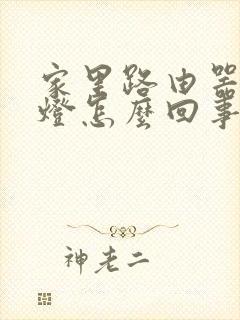 家里路由器
燈怎麼回事
神老二